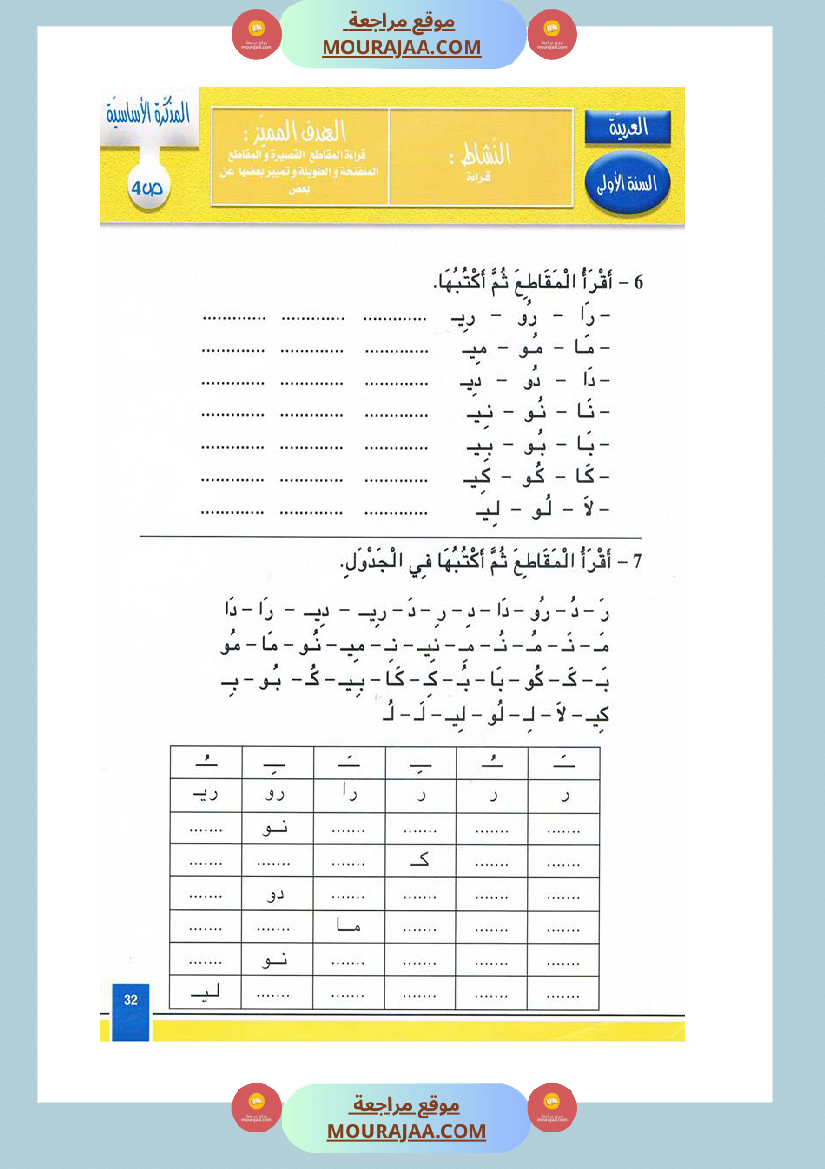 موقع مراجعة
MOURAJAA.COM
العربيّة
السنة الأولى
النّشاط :
قراءة
الهدف المميّز :
قراءة المقاطع القصيرة والمقاطع
المنفتحة والطويلة وتمييز بعضها عن
بعض
المذكّرة الأساسيّة
ص4
6 - أَقْرَأُ الْمَقَاطِعَ ثُمَّ أَكْتُبُهَا.
- رَا - رُو - رِيـ ............. ............. .............
- مَـا - مُـو - مِيـ ............. ............. .............
- دَا - دُو - دِيـ ............. ............. .............
- نَـا - نُـو - نِيـ ............. ............. .............
- بَـا - بُـو - بِيـ ............. ............. .............
- كَا - كُو - كِيـ ............. ............. .............
- لَا - لُـو - لِيـ ............. ............. .............
7 - أَقْرَأُ الْمَقَاطِعَ ثُمَّ أَكْتُبُهَا فِي الْجَدْوَلِ.
رَ - دُ - رُو - دَا - دِ - رِ - دَ - رِيـ - دِيـ - رَا - دَا
مَـ - نَـ - مُـ - نُـ - مِـ - نِيـ - نِـ - مِيـ - نُـو - مَا - مُو
بَـ - كَـ - كُو - بَا - بُـ - كِـ - كَا - بِيـ - كُـ - بُو - بِـ
كِيـ - لَا - لِـ - لُو - لِيـ - لَـ - لُـ
ـَـ ـُـ ـِـ ـَـ ـِـ ـُـ
ر ر ر را رو ريـ
....... ....... ....... ....... نـو .......
....... ....... كـ ....... ....... .......
....... ....... ....... ....... دو .......
....... ....... ....... مـا ....... .......
....... ....... ....... ....... نـو .......
....... ....... ....... ....... ....... ليـ
32
موقع مراجعة
MOURAJAA.COM